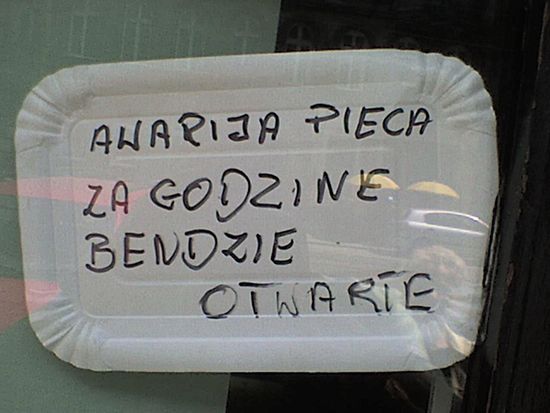 AWARIJA PIECA
ZA GODZINE
BENDZIE
OTWARTE